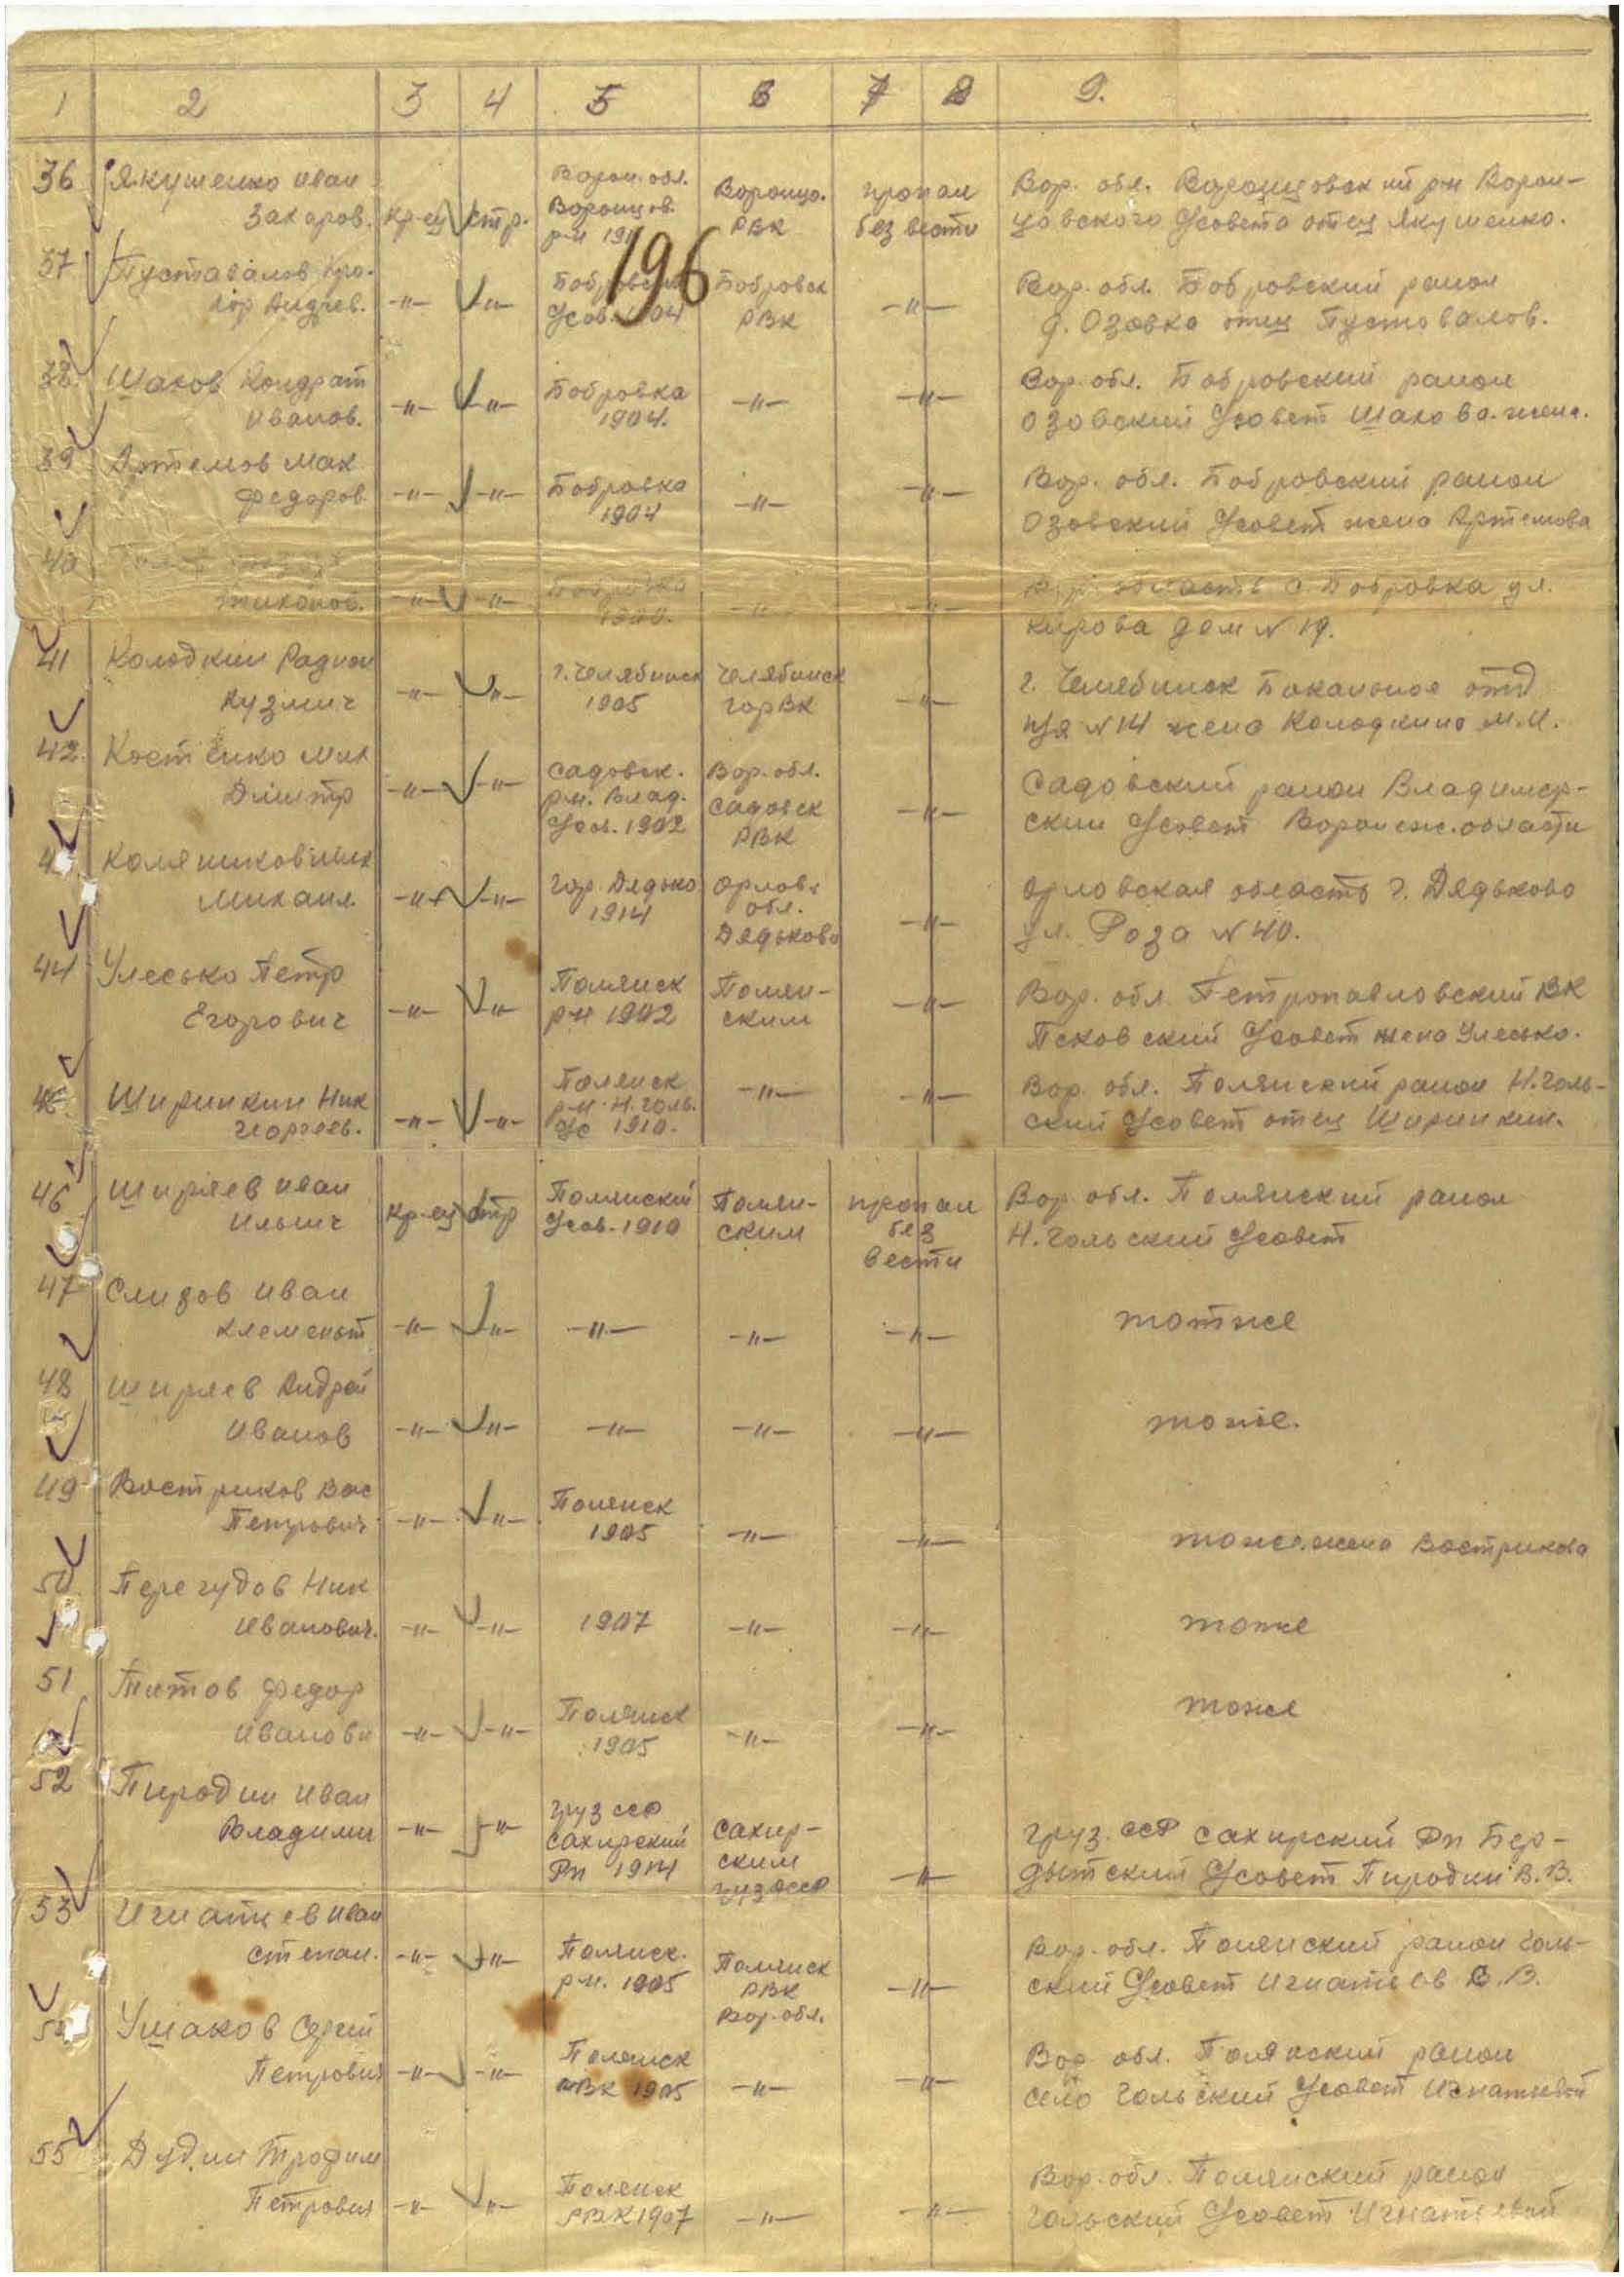 1 2 3 4 5 6 7 8 9.
36 Якушенко Иван Захаров. кр-ец стр. Ворон. обл. Воронцов. р-н Воронцо. РВК пропал без вести Вор. обл. Воронцовский р-н Ворон-
цовского Усовета отец Якушенко.
37 Пуставалов
Андреев. -"- -"- Усов. 1904 Бобровск РВК -"- Вор. обл. Бобровский раион
д. Озовка отец Пустовалов.
196
38 Шахов Кондрат
Иванов. -"- -"- Бобровка 1904. -"- -"- Вор. обл. Бобровский раион
Озовский Усовет жена.
39 Артемов Мак
Федоров. -"- -"- Бобровка 1904 -"- -"- Вор. обл. Бобровский раион
Озовский Усовет жена Артемова
40
Тихонов. -"- -"- Бобровка -"- -"- область с. Бобровка ул.
Кирова дом N 19.
41 Колодкин Радион
Кузмич -"- -"- г. Челябинск 1905 Челябинск горВК -"- г. Челябинск
N 14 жена Колодкина М.И.
42. Костенко Мих
Дмитр -"- -"- Садовск. р-н. Влад. Усов. 1902 Вор. обл. Садовск РВК -"- Садовский раион Владимер-
ский Усовет Воронеж. области
Михаил. -"- -"- гор. Дядько 1914 Орловс обл. Дядьково -"- Орловская область г. Дядьково
ул. Роза N 40.
44 Улесько Петр
Егорович -"- -"- Полянск р-н 1902 Полян-
ским -"- Вор. обл. Петропавловский ВК
Псковский Усовет жена Улесько.
45 Ширинкин Ник
-"- -"- Полянск р-н Н. Голь. Ус 1910. -"- -"- Вор. обл. Полянский раион Н. Голь-
ский Усовет отец Ширинкин.
46 Ширяев Иван
Ильич кр-ец стр Полянский Усов. 1910 Полян-
ским пропал без вести Вор. обл. Полянский раион
Н. Гольский Усовет
47 Слизов Иван
Клеменьт -"- -"- -"- -"- -"- тотже
48 Ширяев Андрей
Иванов -"- -"- -"- -"- -"- тоже.
49 Востриков Вас
Петрович -"- -"- Полянск 1905 -"- -"- тоже. жена Вострикова
50 Перегудов Ник
Иванович. -"- -"- 1907 -"- -"- тоже
51 Титов Федор
Иванови -"- -"- Полянск 1905 -"- -"- тоже
52 Пиродин Иван
Владими -"- -"- Груз ССР Сахирский Рн 1914 Сахир-
ским Груз ССР -"- Груз. ССР Сахирский Рн
Усовет Пиродин В. В.
53 Игнатцев Иван
Степан. -"- -"- Полянск. р-н. 1905 Полянск РВК Вор. обл. -"- Вор. обл. Полянский раион Голь-
ский Усовет Игнатьев С. В.
54 Ушаков Сергей
Петрович -"- -"- Полянск РВК 1905 -"- -"- Вор. обл. Полянский раион
село Гольский Усовет
55 Дудин Трофим
Петрович -"- -"- Полянск РВК 1907 -"- -"- Вор. обл. Полянский раион
Гольский Усовет Игнатьевой